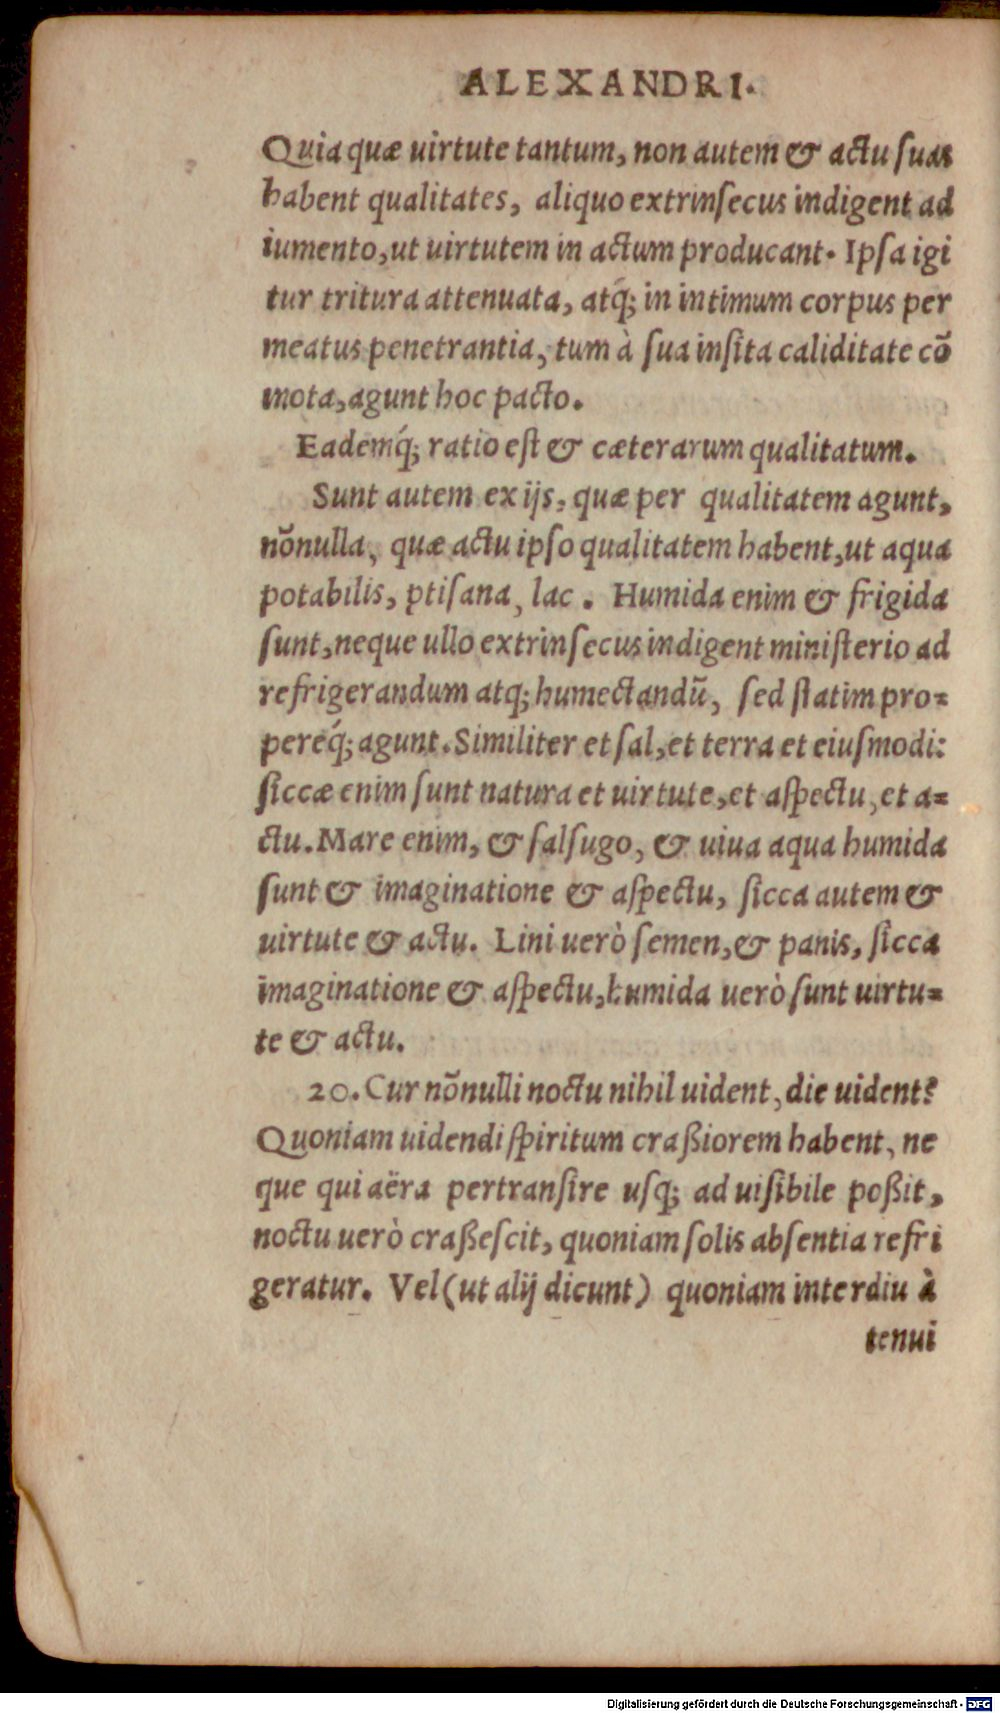 ALEXANDRI.
Quia quæ uirtute tantum, non autem & actu suas
habent qualitates, aliquo extrinsecus indigent ad
iumento, ut uirtutem in actum producant. Ipsa igi
tur tritura attenuata, atq́; in intimum corpus per
meatus penetrantia, tum à sua insita caliditate cõ
mota, agunt hoc pacto.
Eademq́; ratio est & cæterarum qualitatum.
Sunt autem ex ijs, quæ per qualitatem agunt,
nõnulla, quæ actu ipso qualitatem habent, ut aqua
potabilis, ptisana, lac. Humida enim & frigida
sunt, neque ullo extrinsecus indigent ministerio ad
refrigerandum atq; humectandũ, sed statim pro-
pereq́; agunt. Similiter et sal, et terra et eiusmodi:
siccæ enim sunt natura et uirtute, et aspectu, et a-
ctu. Mare enim, & salsugo, & uiua aqua humida
sunt & imaginatione & aspectu, sicca autem &
uirtute & actu. Lini uerò semen, & panis, sicca
imaginatione & aspectu, humida uerò sunt uirtu-
te & actu.
20. Cur nõnulli noctu nihil uident, die uident?
Quoniam uidendi spiritum craßiorem habent, ne
que qui aëra pertransire usq; ad uisibile poßit,
noctu uerò craßescit, quoniam solis absentia refri
geratur. Vel (ut alij dicunt) quoniam interdiu à
tenui
Digitalisierung gefördert durch die Deutsche Forschungsgemeinschaft - DFG